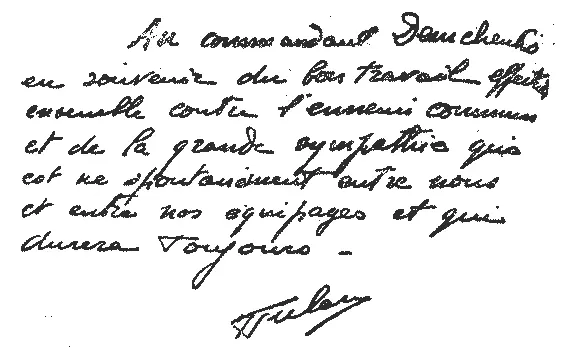 Au commandant Demchenko
en souvenir du bon travail effectué
ensemble contre l'ennemi commun
et de la grande sympathie qui
est né spontanément entre nous
et entre nos équipages et qui
durera Toujours -